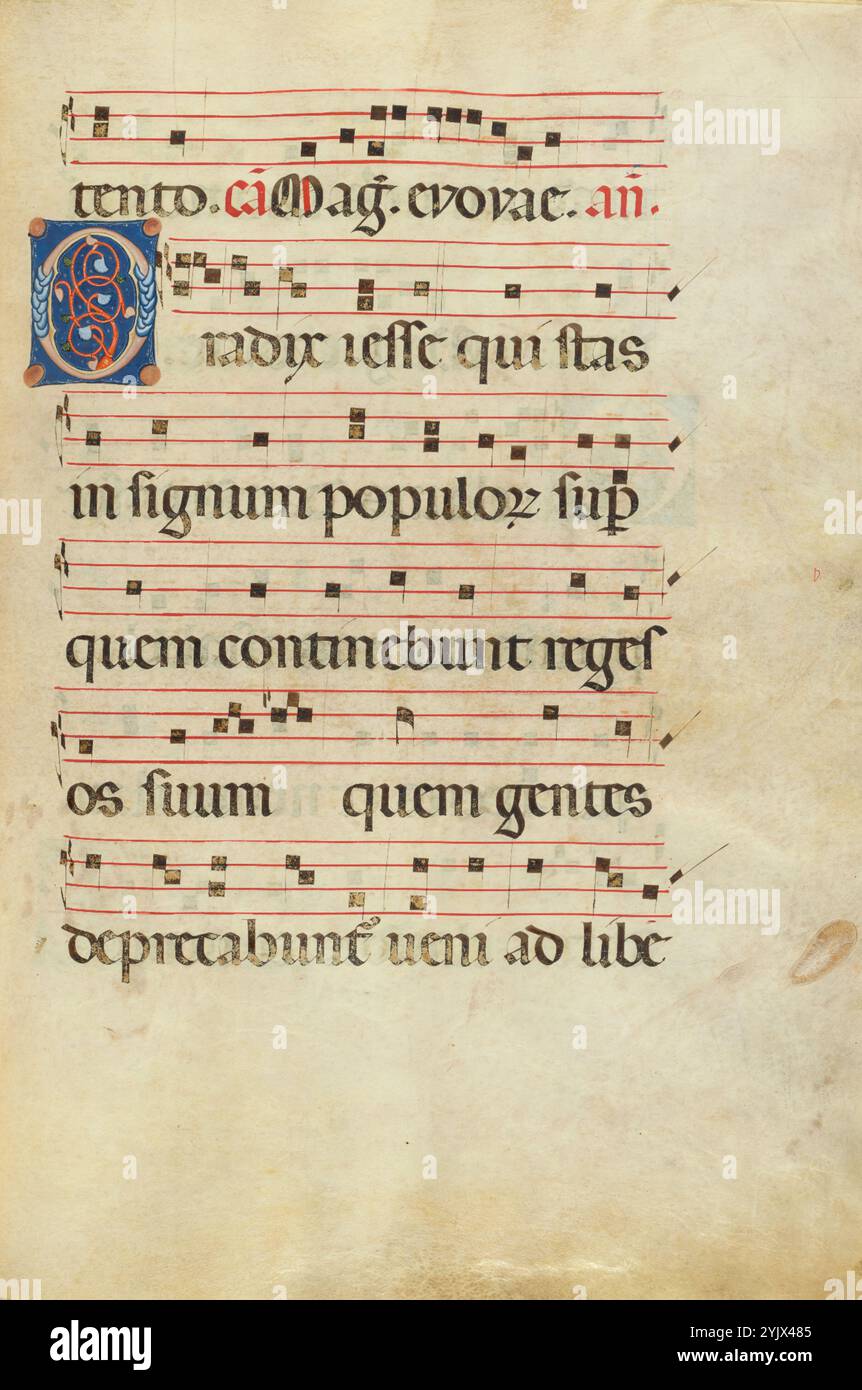 tento. cā Mag̃. evovae. añ.
O radix iesse qui stas
in signum populoꝝ suꝑ
quem continebunt reges
os suum quem gentes
deprecabunt᷑ ueni ad libe
alamy
Image ID: 2YJX485
www.alamy.com